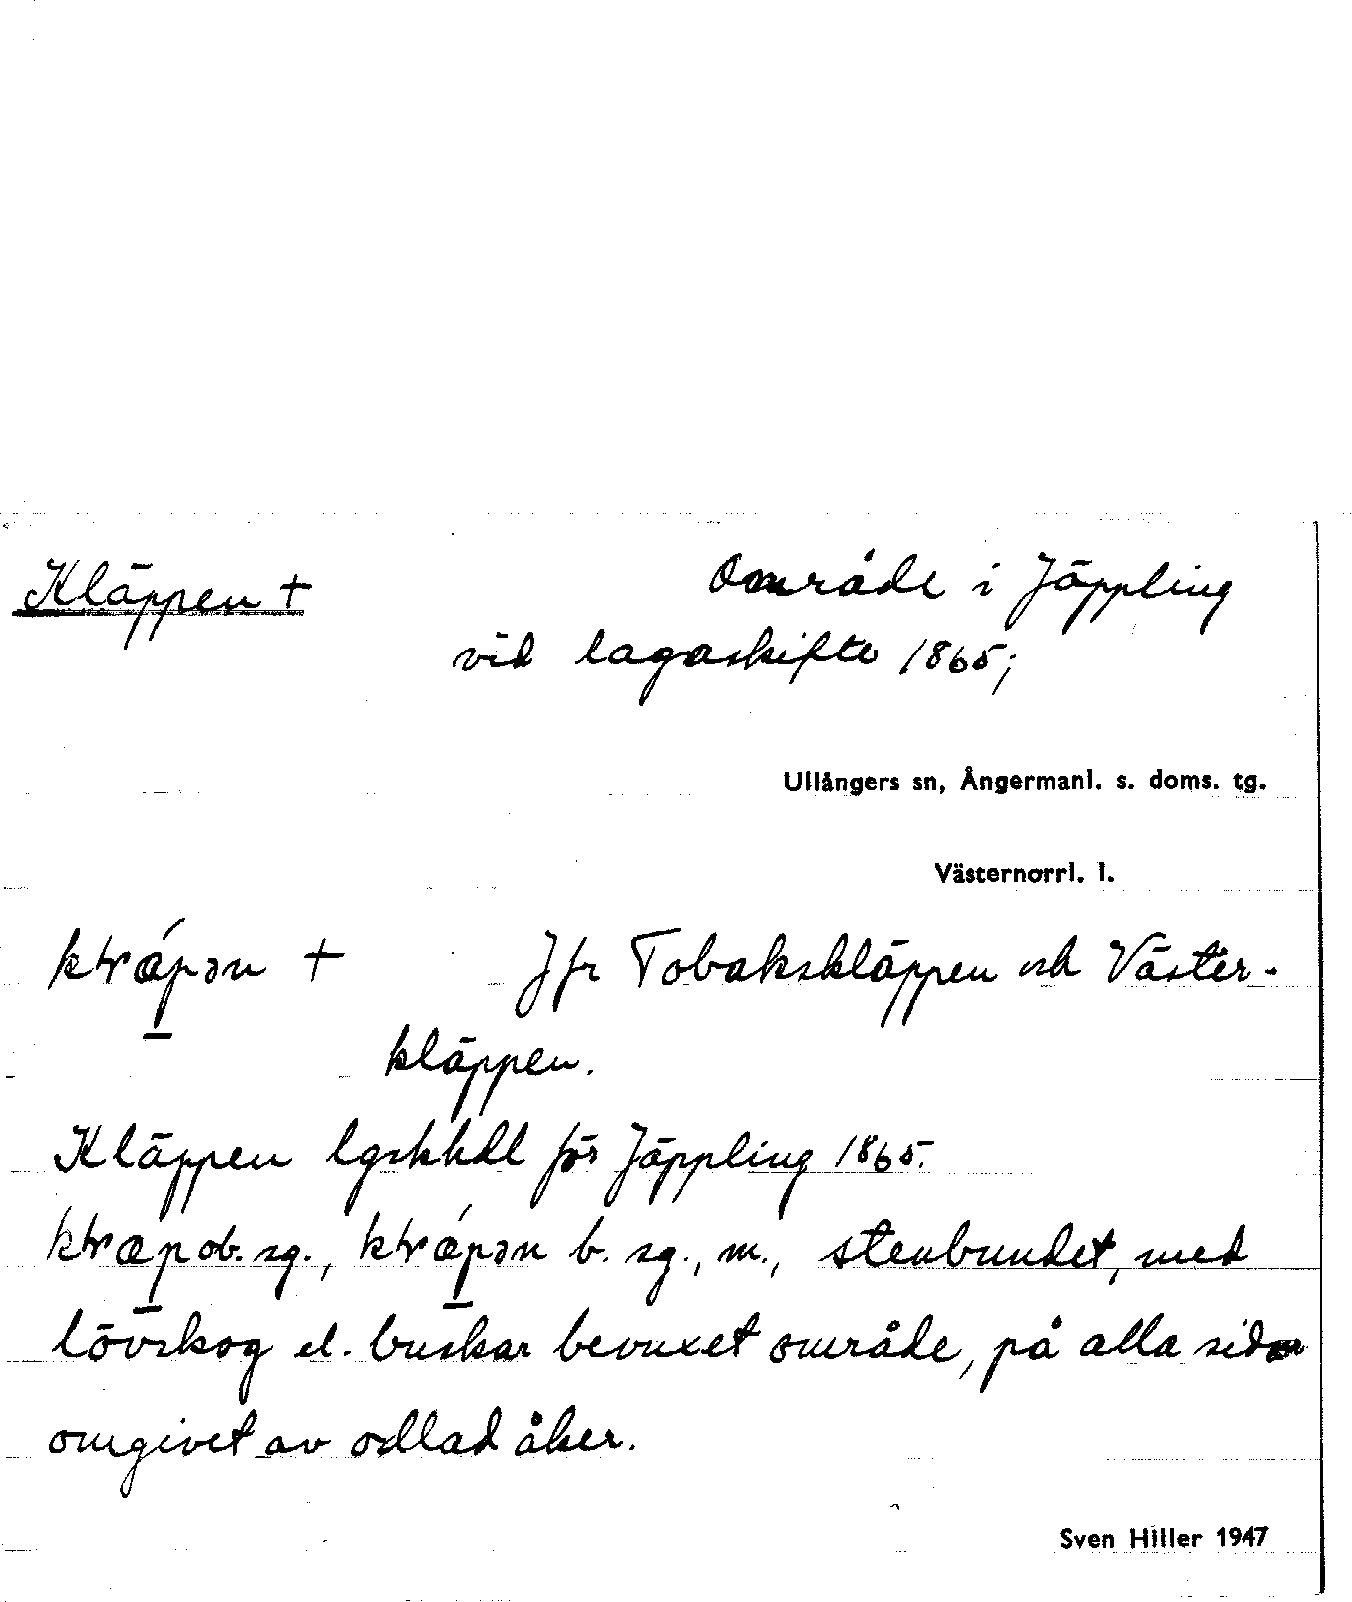 Kläppen +
Område i Jäppling
vid lagaskifte 1865;
Ullångers sn, Ångermanl. s. doms. tg.
Västernorrl. l.
+ Jfr Tobakskläppen och Väster-
kläppen.
Kläppen lgskhdl för Jäppling 1865.
ob. sg., b. sg., m., stenbundet, med
lövskog el. buskar bevuxet område, på alla sidor
omgivet av odlad åker.
Sven Hiller 1947